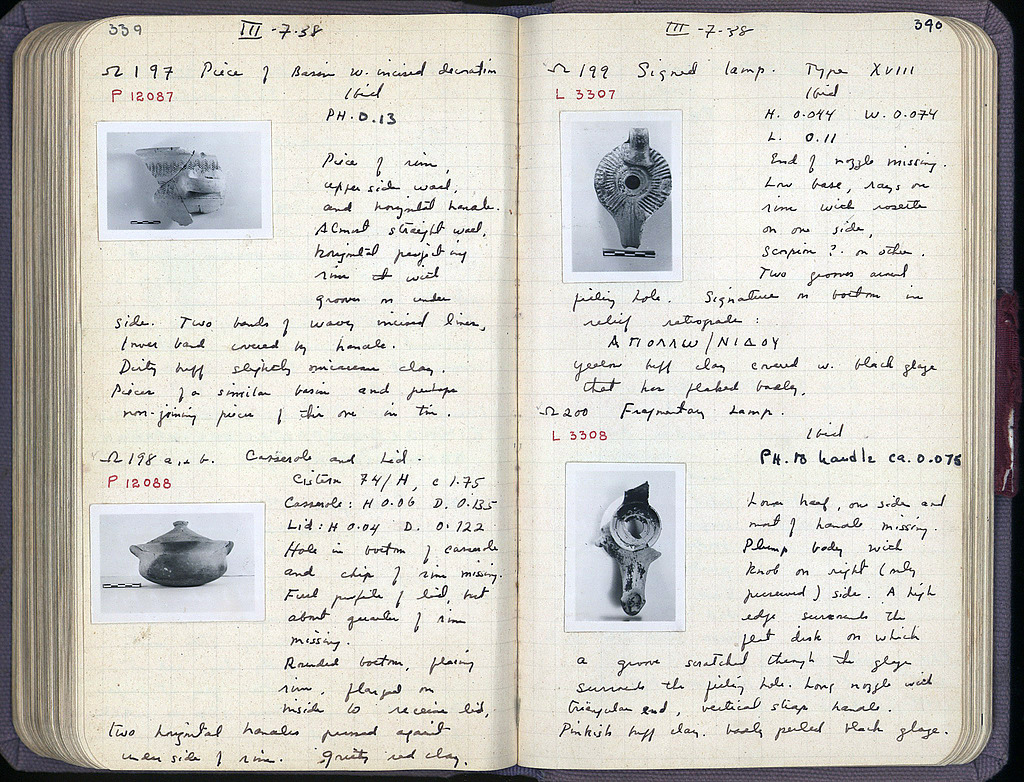 339
III - 7-38
Ω 197 Piece of Basin w. incised decoration
P 12087
Ibid
PH. 0.13
Piece of rim,
upper side wall,
and horizontal handle.
Almost straight wall,
horizontal projecting
rim with
grooves on under
side. Two bands of wavy incised lines,
lower band covered by handle.
Dirty buff slightly micaceous clay.
Pieces of a similar basin and perhaps
non-joining pieces of this one in tin.
Ω 198 a, + b. Casserole and Lid.
P 12088
Cistern 74/H, c 1.75
Casserole: H 0.06 D. 0.135
Lid: H 0.04 D. 0.122
Hole in bottom of casserole
and chip of rim missing.
Full profile of lid, but
about quarter of rim
missing.
Rounded bottom, flaring
rim, flanged on
inside to receive lid,
two horizontal handles pressed against
under side of rim. Gritty red clay.
III - 7-38
340
Ω 199 Signed lamp. Type XVIII
L 3307
Ibid
H. 0.044 W. 0.074
L. 0.11
End of nozzle missing.
Low base, rays on
rim with rosette
on one side,
scorpion ? on other.
Two grooves around
filling hole. Signature on bottom in
relief retrograde:
ΑΠΟΛΛѠ/ΝΙΔΟΥ
Yellow buff clay covered w. black glaze
that has flaked badly.
Ω 200 Fragmentary Lamp.
L 3308
Ibid
PH. to handle ca. 0.075
Lower half, one side and
most of handle missing.
Plump body with
knob on right (only
preserved) side. A high
edge surrounds the
flat disk on which
a groove scratched through the glaze
surrounds the filling hole. Long nozzle with
triangular end, vertical strap handle.
Pinkish buff clay. badly peeled black glaze.